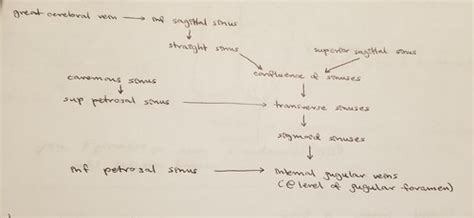 great cerebral vein → inf sagittal sinus
straight sinus
superior sagittal sinus
confluence of sinuses
cavernous sinus
sup petrosal sinus → transverse sinuses
sigmoid sinuses
inf petrosal sinus → internal jugular veins
(@ level of jugular foramen)